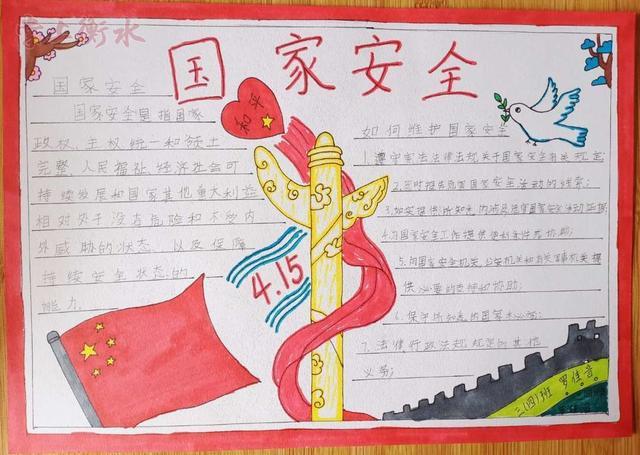 掌上衡水
国家安全
和平
国家安全
国家安全是指国家
政权、主权统一和领土
完整、人民福祉、经济社会可
持续发展和国家其他重大利益
相对处于没有危险和不受内
外威胁的状态，以及保障
持续安全状态的
能力。
4.15
如何维护国家安全
1.遵守宪法法律法规关于国家安全有关规定
2.及时报告危害国家安全活动的线索；
3.如实提供所知悉的涉及危害国家安全活动证据
4.为国家安全工作提供便利条件或协助；
5.向国家安全机关、公安机关和有关军事机关提
供必要的支持和协助；
6.保守所知悉的国家秘密；
7.法律行政法规规定的其他
义务；
三(四)班 罗佳音